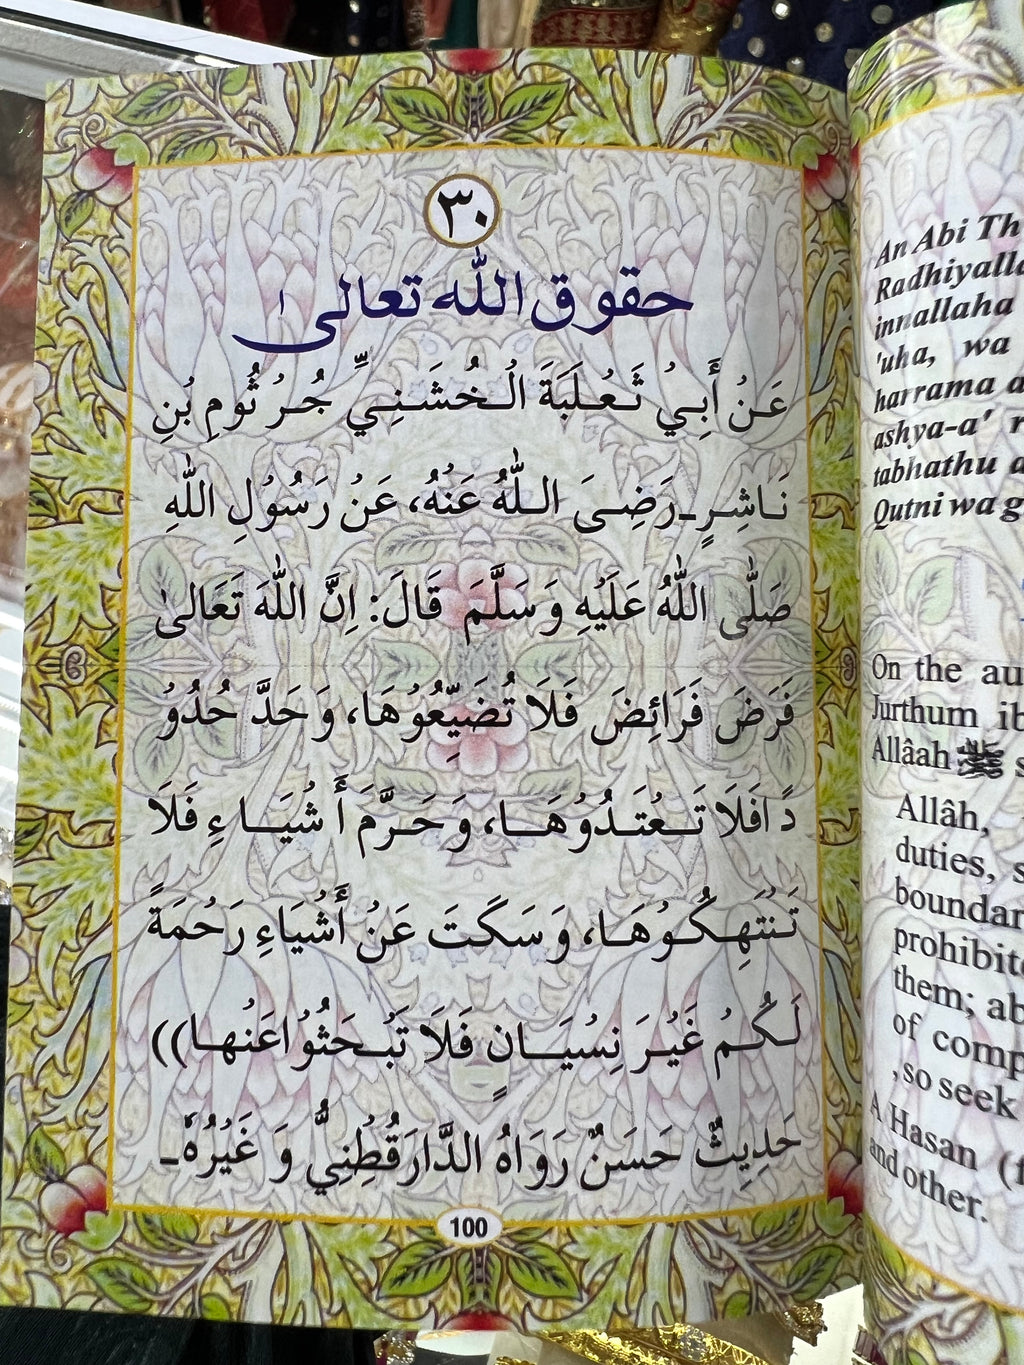 ٣٠
حقوق الله تعالىٰ
عَنْ أَبِيْ ثَعْلَبَةَ الْخُشَنِيِّ جُرْ ثُومِ بْنِ
نَاشِرٍ۔رَضِىَ اللّٰهُ عَنْهُ، عَنْ رَسُوْلِ اللّٰهِ
صَلَّى اللّٰهُ عَلَيْهِ وَ سَلَّمَ قَالَ: اِنَّ اللّٰهَ تَعَالىٰ
فَرَضَ فَرَائِضَ فَلَا تُضَيِّعُوْهَا، وَ حَدَّ حُدُوْ
دًا فَلَا تَعْتَدُوْهَا، وَ حَرَّمَ أَ شْيَاءِ فَلَا
تَنْتَهِكُوْهَا، وَ سَكَتَ عَنْ أَشْيَاءِ رَحْمَةً
لَكُمْ غَيْرَ نِسْيَانٍ فَلَا تَبْحَثُوْا عَنْها))
حَدِيثٌ حَسَنٌ رَوَاهُ الدَّارَقُطْنِيُّ وَ غَيْرُهٗ۔
100
An Abi Th
innallaha
'uha, wa
harrama a
ashya-a' r
tabhathu a
Qutni wa g
On the au
Jurthum ib
Allâah ﷺ s
Allâh,
duties, s
boundar
prohibite
them; ab
of comp
, so seek
A Hasan (f
and other.